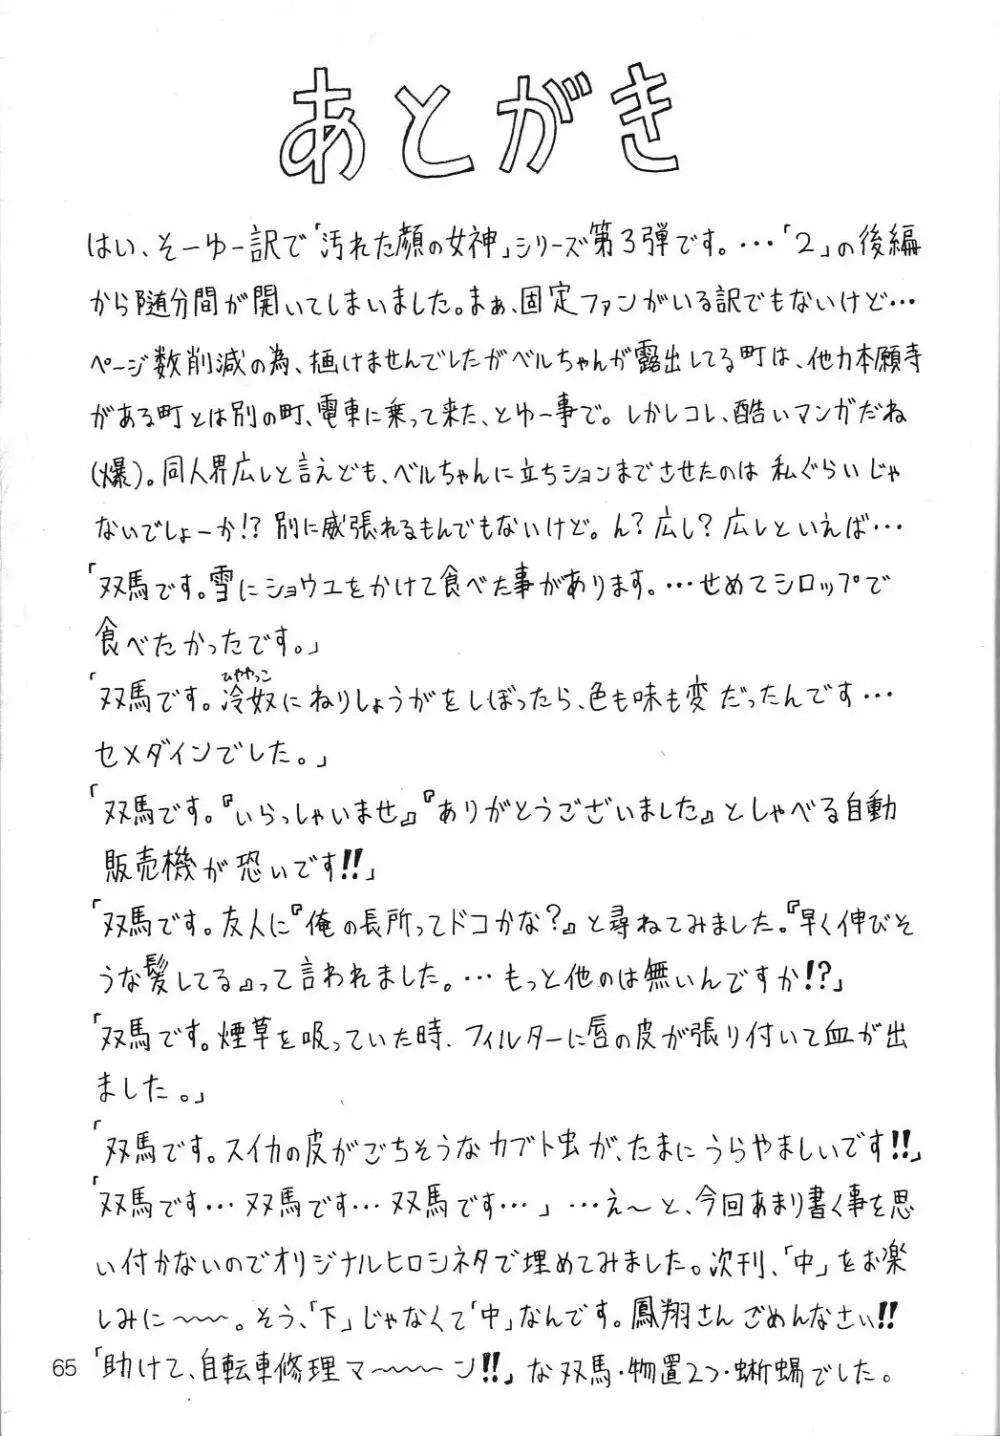 あとがき
はい、そーゆー訳で「汚れた顔の女神」シリーズ第3弾です。…「2」の後編
から随分間が開いてしまいました。まぁ、固定ファンがいる訳でもないけど…
ページ数削減の為、描けませんでしたがベルちゃんが露出してる町は、他力本願寺
がある町とは別の町、電車に乗って来た、とゆー事で。しかしコレ、酷いマンガだね
(爆)。同人界広しと言えども、ベルちゃんに立ちションまでさせたのは 私ぐらいじゃ
ないでしょーか!? 別に威張れるもんでもないけど。ん?広し?広しといえば…
「双馬です。雪にショウユをかけて食べた事があります。…せめてシロップで
食べたかったです。」
「双馬です。冷奴にねりしょうがをしぼったら、色も味も変だったんです…
ひややっこ
セメダインでした。」
「双馬です。『いらっしゃいませ』『ありがとうございました』としゃべる自動
販売機が恐いです!!」
「双馬です。友人に『俺の長所ってドコかな?』と尋ねてみました。『早く伸びそ
うな髪してる』って言われました。…もっと他のは無いんですか!?」
「双馬です。煙草を吸っていた時、フィルターに唇の皮が張り付いて血が出
ました。」
「双馬です。スイカの皮がごちそうなカブト虫が、たまにうらやましいです!!」
「双馬です…双馬です…双馬です…」…え〜と、今回あまり書く事を思
い付かないのでオリジナルヒロシネタで埋めてみました。次刊、「中」をお楽
しみに〜〜。そう、「下」じゃなくて「中」なんです。鳳翔さんごめんなさい!!
「助けて、自転車修理マ〜〜〜ン!!」な双馬・物置2つ・蜥蜴でした。
65